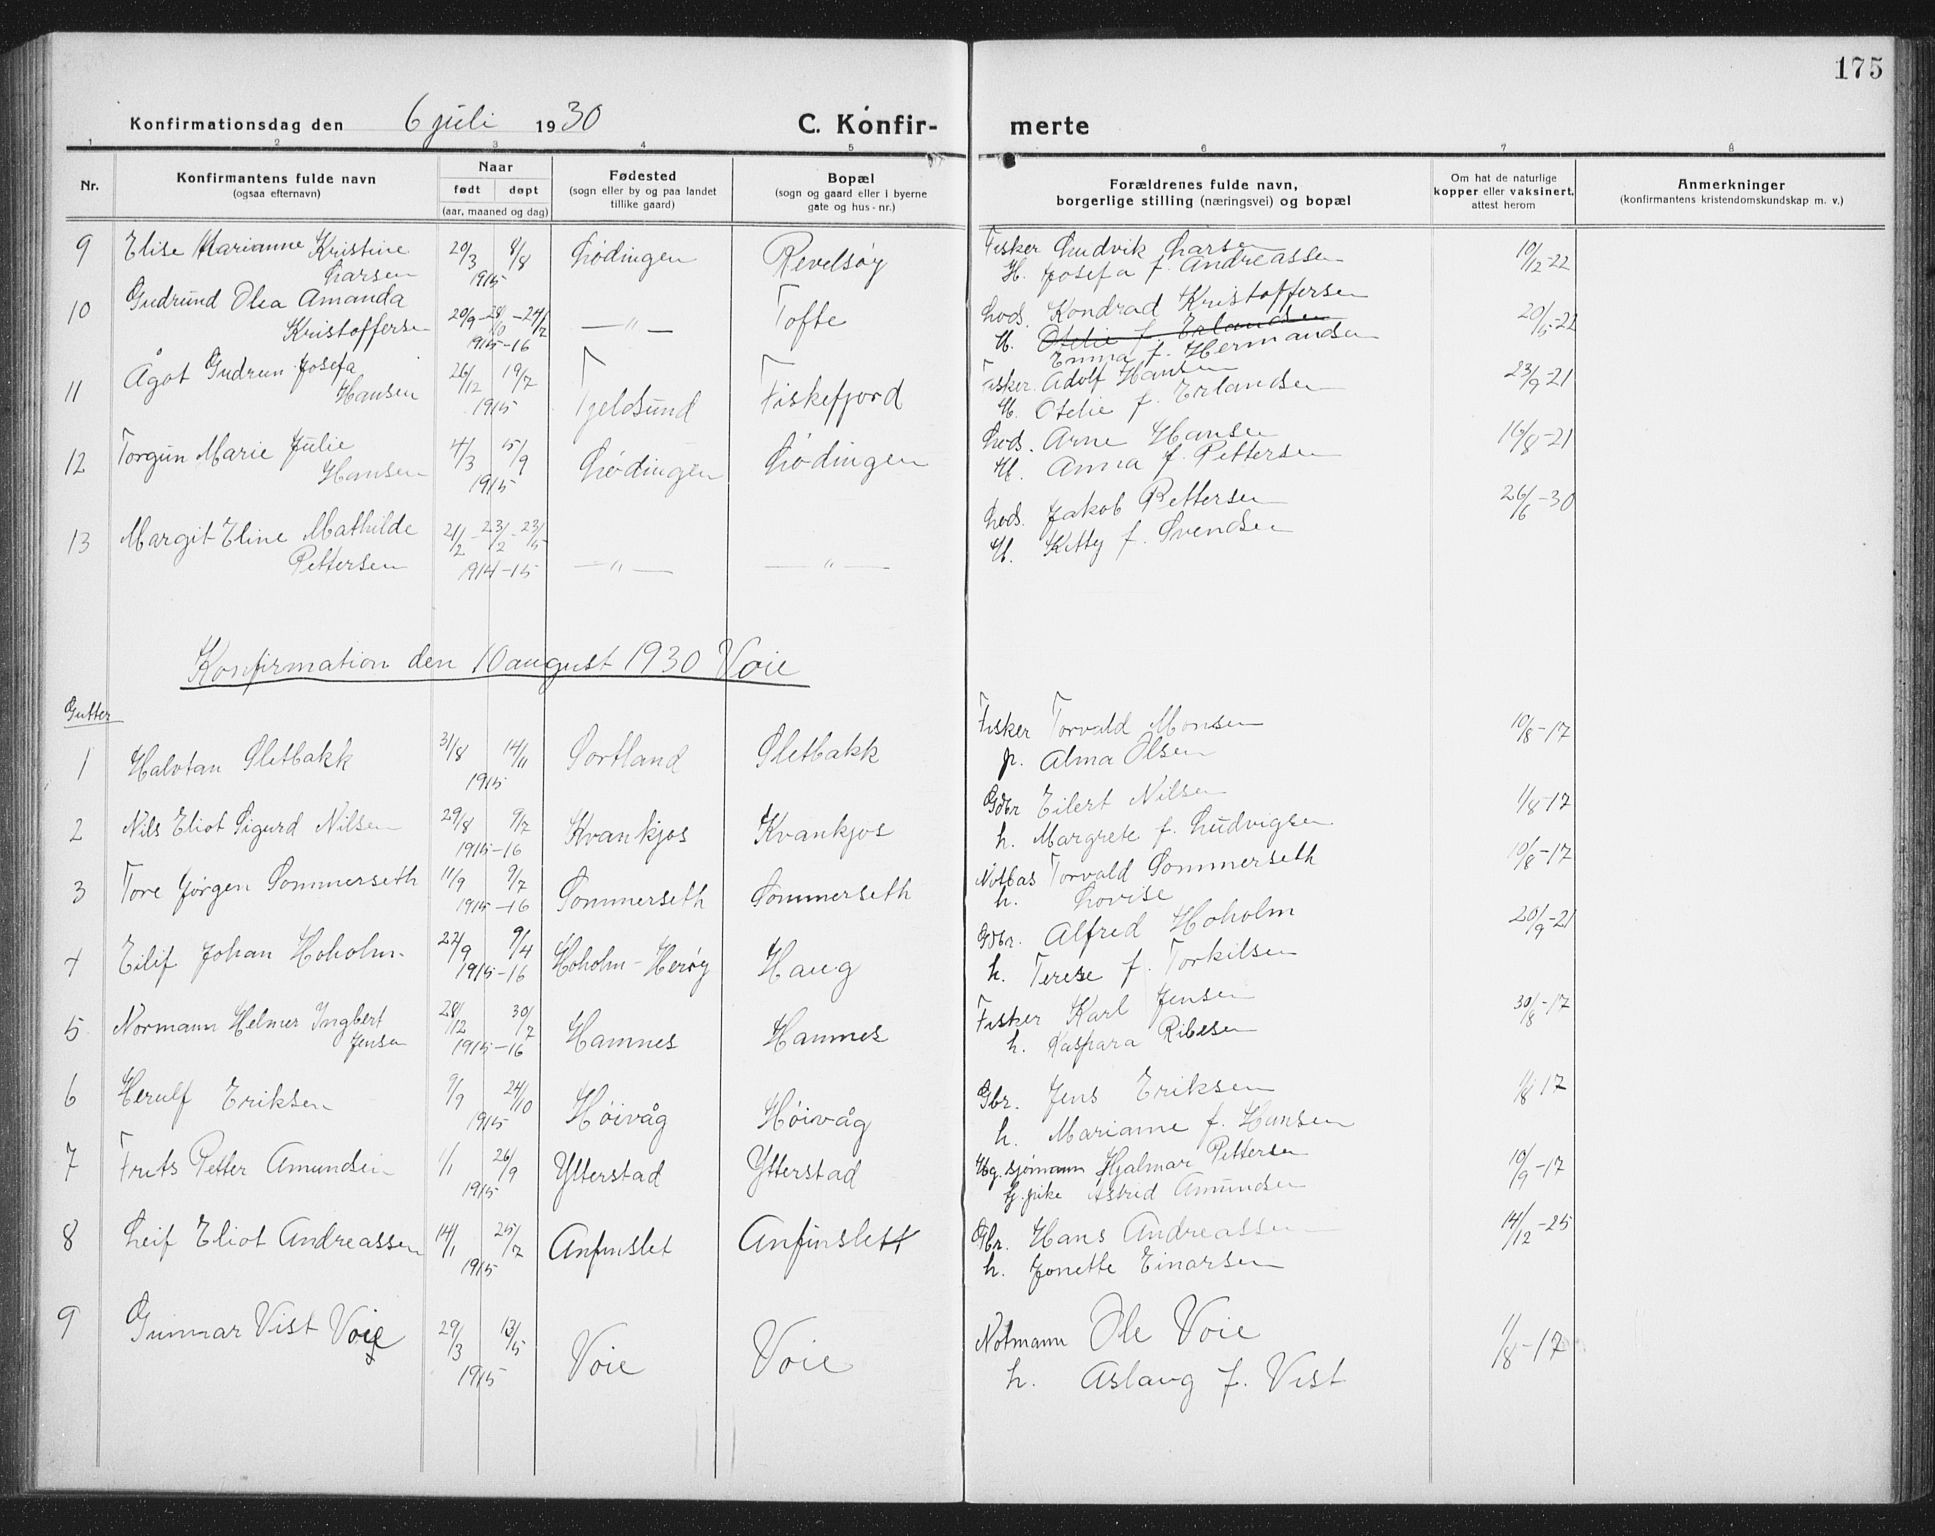 175
Konfirmationsdag den 6 juli 1930 C. Konfirmerte
1 2 3 4 5 6 7 8
Nr. Konfirmantens fulde navn (ogsaa efternavn) Naar født døpt (aar, maaned og dag) Fødested (sogn eller by og paa landet tillike gaard) Bopæl (sogn og gaard eller i byerne gate og hus-nr.) Forældrenes fulde navn, borgerlige stilling (næringsvei) og bopæl Om hat de naturlige kopper eller vaksinert, attest herom Anmerkninger (konfirmantens kristendomskundskap m. v.)
9 Elise Marianne Kristine 20/3 8/8 Lødingen Revelsøy Fisker Ludvik Larsen 10/12-22
Larsen 1915 H. Josefa f. Andreassen
10 Gudrund Olea Amanda 20/9-28/10-24/2 —"— Tofte Lods. Kondrad Kristoffersen 20/5-22
Kristoffersen 1915-16 H. Otelie f. Erlandsen
Emma f. Hermandsen
11 Ågot Gudrun Josefa 26/12 19/7 Tjeldsund Fiskefjord Fisker Adolf Hansen 23/9-21
Hansen 1915 H. Otelie f. Erlandsen
12 Torgun Marie Julie 4/3 5/9 Lødingen Lødingen Lods. Arne Hansen 16/8-21
Hansen 1915 H. Anna f. Pettersen
13 Margit Eline Mathilde 21/2-23/2-23/5 —"— —"— Lods. Jakob Pettersen 26/6-30
Pettersen 1914-15 H. Kitty f. Svendsen
Konfirmation den 10 august 1930 Voie
Gutter
1 Halvtan Sletbakk 31/8 14/11 Sortland Sletbakk Fisker Torvald Monsen 10/8-17
1915 p. Alma Olsen
2 Nils Eliot Sigurd Nilsen 29/8 9/7 Kvankjos Kvankjos Gdbr Eilert Nilsen 1/8-17
1915-16 h. Margrete f. Ludvigsen
3 Tore Jørgen Sommerseth 11/9 9/7 Sommerseth Sommerseth Notbas Torvald Sommerseth 10/8-17
1915-16 h. Lovise
4 Eilif Johan Hoholm 22/9 9/4 Hoholm - Herøy Haug Gdbr. Alfred Hoholm 20/9-21
1915-16 h. Terese f. Torkilsen
5 Normann Helmer Ingbert 28/12 30/7 Hamnes Hamnes Fisker Karl Jensen 30/8-17
Jensen 1915-16 h. Kaspara Ribesen
6 Herulf Eriksen 9/9 24/10 Høivåg Høivåg Gbr. Jens Eriksen 1/8 17
1915 h. Marianne f. Hansen
7 Frits Petter Amundsen 1/1 26/9 Ytterstad Ytterstad Ug. sjømann Hjalmar Pettersen 10/9-17
1915 g. pike Astrid Amundsen
8 Leif Eliot Andreassen 14/1 25/7 Anfinslet Anfinslett Gbr. Hans Andreassen 14/12-25
1915 h. Jonette Einarsen
9 Gunnar Vist Voie 29/3 13/5 Voie Voie Notmann Ole Voie 1/8-17
1915 h. Aslaug f. Vist